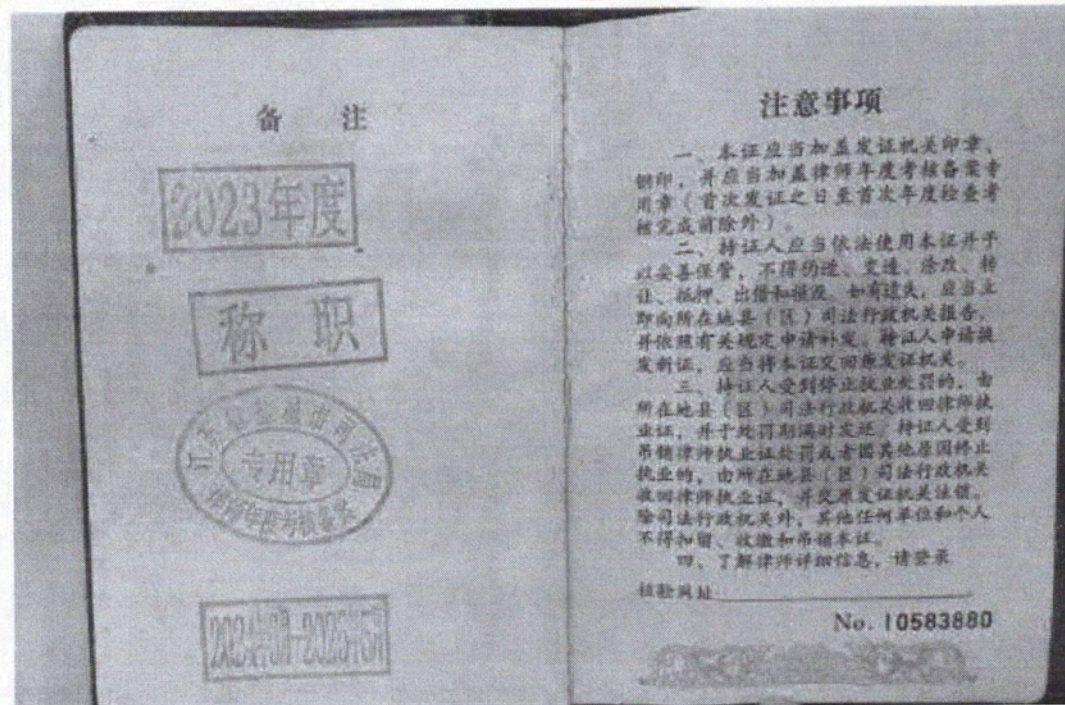 备 注
2023年度
称 职
江苏省盐城市司法局
专用章
律师年度考核备案
注意事项
一、本证应当加盖发证机关印章、
钢印，并应当加盖律师年度考核备案专
用章（首次发证之日至首次年度检查考
核完成前除外）。
二、持证人应当依法使用本证并予
以妥善保管，不得伪造、变造、涂改、转
让、抵押、出借和损毁。如有遗失，应当立
即向所在地县（区）司法行政机关报告，
并依照有关规定申请补发。持证人申请换
发新证，应当将本证交回原发证机关。
三、持证人受到停止执业处罚的，由
所在地县（区）司法行政机关收回律师执
业证，并于处罚期满时发还。持证人受到
吊销律师执业证处罚或者因其他原因终止
执业的，由所在地县（区）司法行政机关
收回律师执业证，并交原发证机关注销。
除司法行政机关外，其他任何单位和个人
不得扣留、收缴和吊销本证。
四、了解律师详细信息，请登录
核验网址
No. 10583880